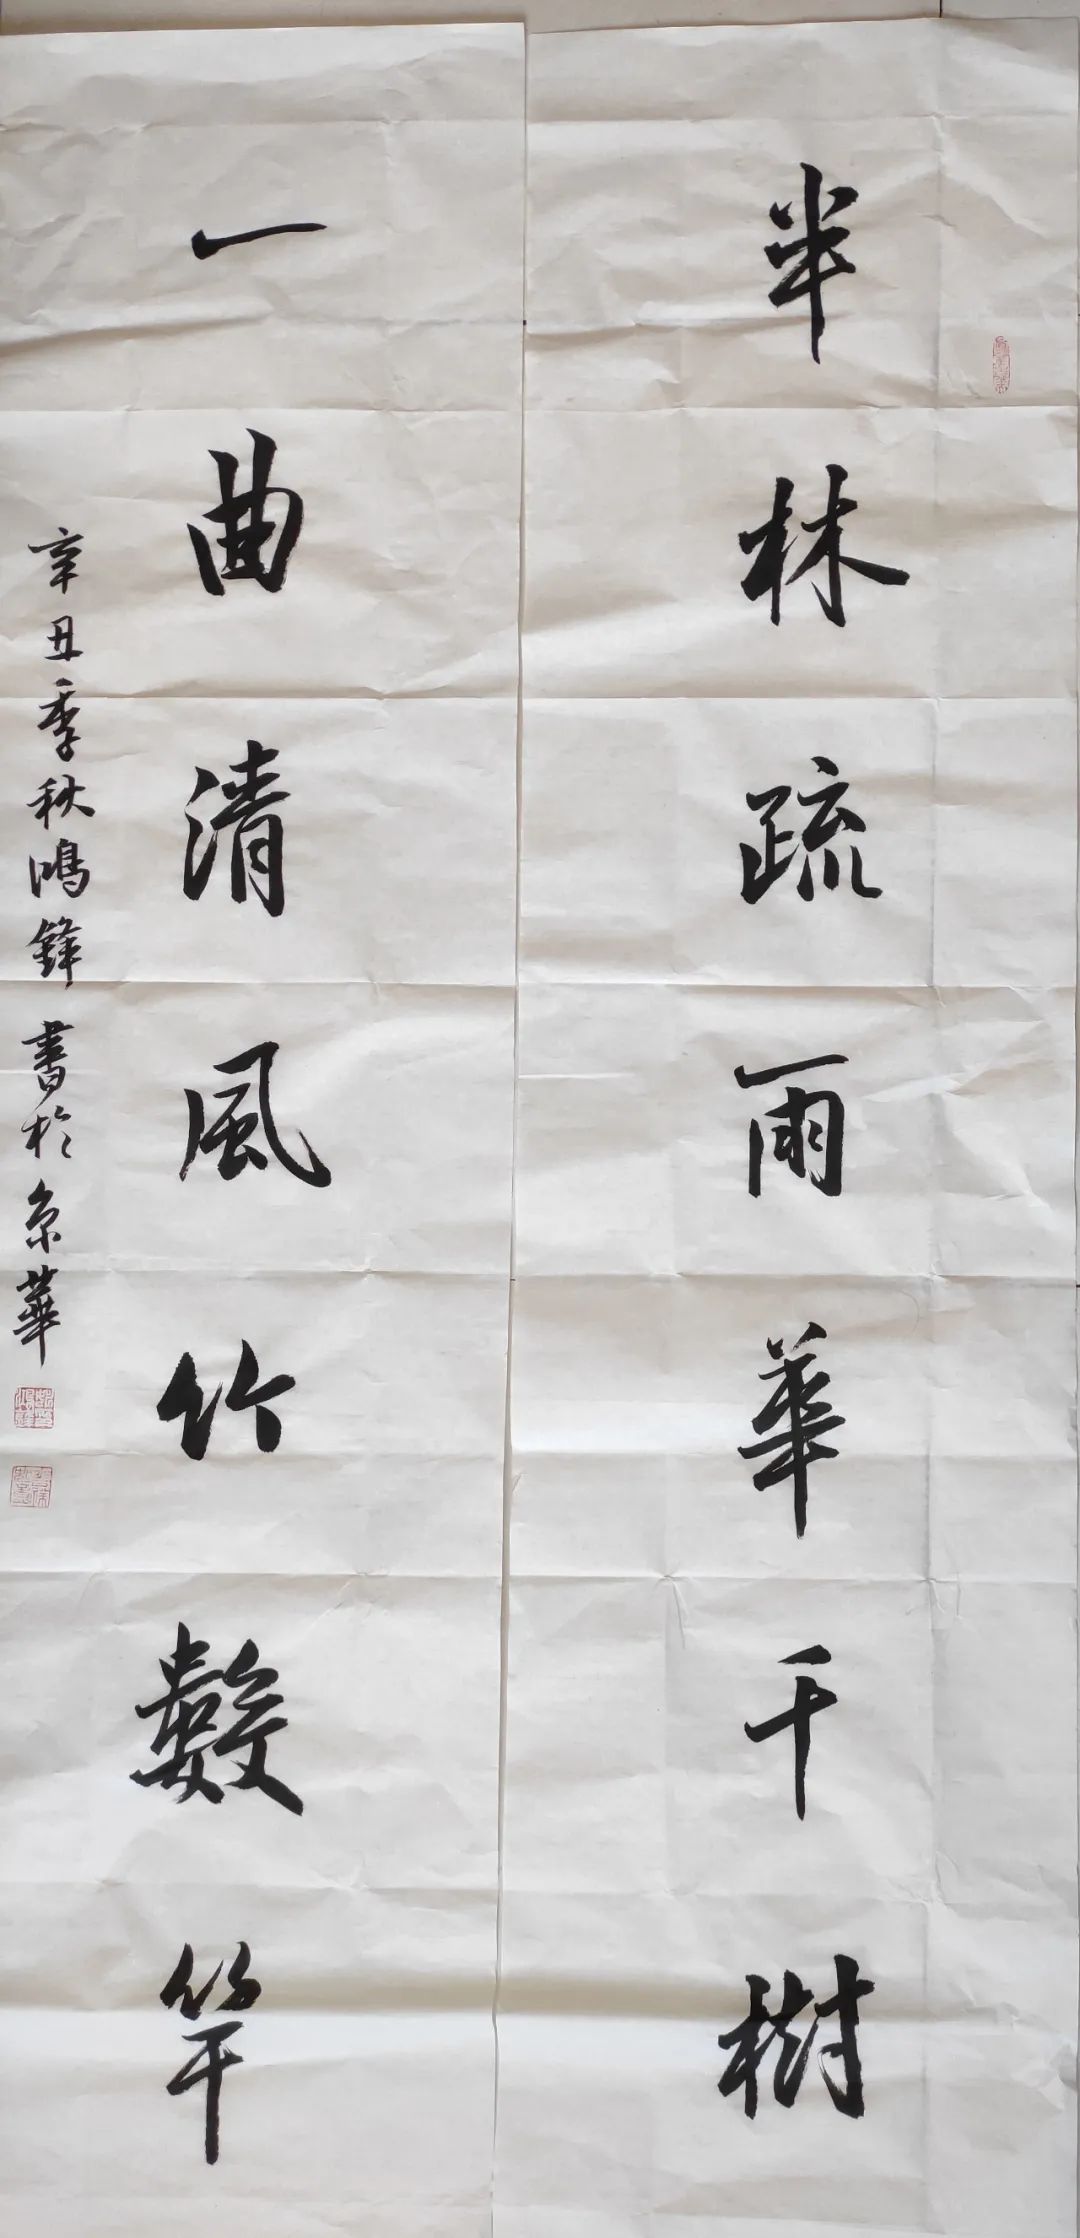 半林疏雨華千樹
一曲清風竹數竿
辛丑季秋鴻鋒書於京華